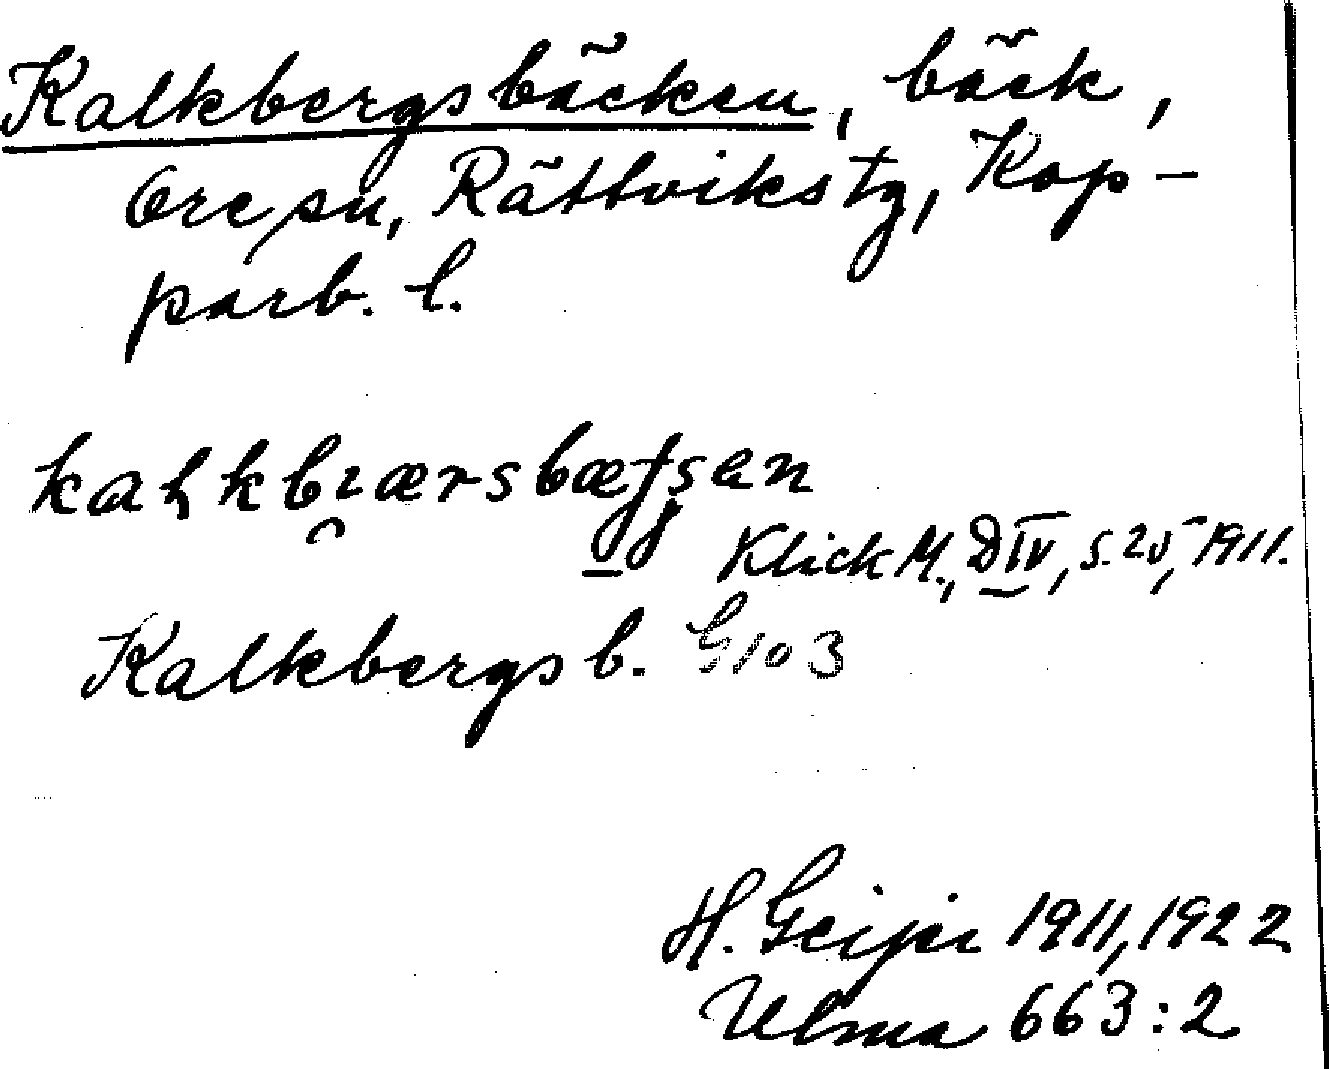 Kalkbergsbäcken, bäck,
Ore sn, Rättviks tg, Kop-
parb. l.
Klick M., D IV, s. 25, 1911.
Kalkbergs b. G 103
H. Geijer 1911, 1922
Ulma 663:2